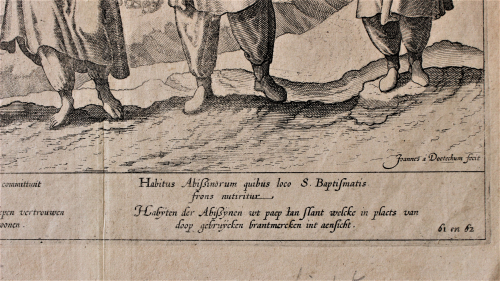 Joannes a Doetechum fecit
committunt
Habitus Abißinorum quibus loco S. Baptiſmatis
frons nuritur
epen vertrouwen
oonen.
Habyten der Abißynen wt paep Ian ſlant welcke in plaets van
doop gebruycken brantmercken int aenſicht.
61 en 62